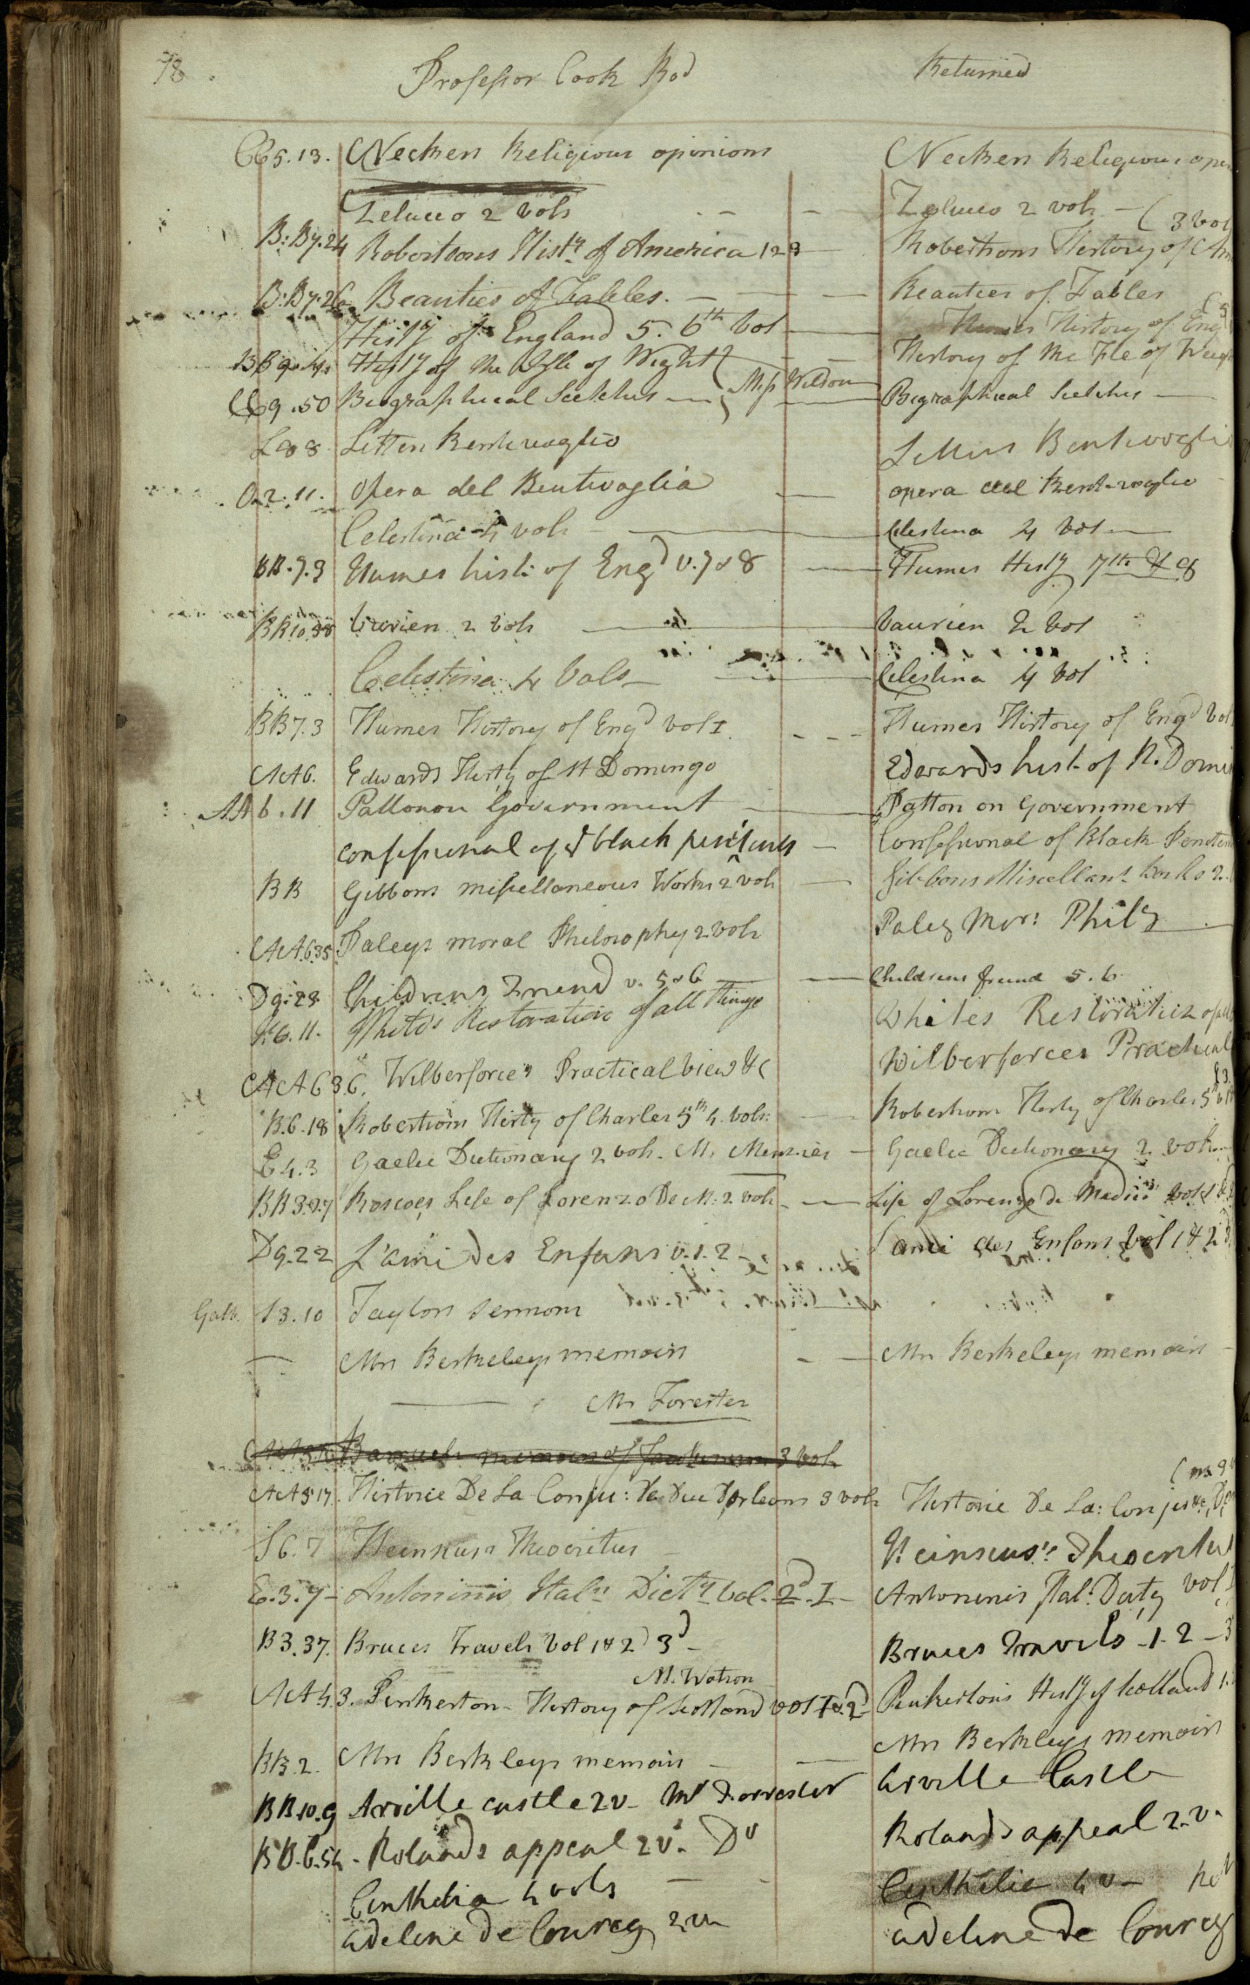 78. Professor Cook Rod Returned
CC5.13. Necker Religious opinions Necker Religious opin
Zelucco 2 vols Zelucco 2 vols (3 vol
B:By.24 Robertsons Histy of America 1 2 3 Robertsons History of Am
B:By.26 Beauties of Fables. Beauties of Fables
Histy of England 5. 6th vol Humes History of Eng
BB9. Histy of the Isle of Wight History of the Ile of Weigh
CC9.50 Biographical Scetches Miss Wilson Biographical Scetches
L88 Letters Bentivoglio Letters Bentivogli
O.2.11. Opera del Bentivoglia opera del Bentivoglio
Celestina 4 vols Celestina 4 vol
BB.7.3 Humes hist: of Engd v. 7 & 8 Humes Histy 7th & 8
BB10.38 Vaurien 2 vols Vaurien 2 vol
Celestina 4 Vols Celestina 4 vol
BB7.3 Humes History of Engd vol I. Humes History of Engd Vol
AA6. Edwards Histy of St Domingo Edwards hist. of St. Domin
AA6.11 Patton on Government Patton on Government
confessional of ye black penitents Confessional of Black Peniten
BB Gibbons miscellaneous Works 2 vols Gibbons Miscellans Works 2
AA6.35 Paleys moral Philosophy 2 vols Paleys Mor: Phily
D9.23 Childrens Friend v. 5 & 6 Childrens friend 5. 6
6.11. White's Restoration of all things Whites Restoration of all
AA6 36. Wilberforce's Practical view &c Wilberforces Practical
B.6.18 Robertsons Histy of Charles 5th 4 vols: Robertsons Histy of Charles 5th
E4.3 Gaelic Dictionary 2 vols. Mr Menzies Gaelic Dictionary 2 vols
BB3.27 Roscoes Life of Lorenzo De M. 2 vols Life of Lorenzo de Medici vol
D9.22 L'ami des Enfans v. 1. 2 L'ami des Enfans vol 1 & 2
Gall. S3.10 Taylors sermons
Mrs Berkeleys memoirs Mrs Berkeleys memoirs
Mr Forester
Barruel's memoirs of Jacobinism 3 vols
AA5.17. Histoire De La Conju: De Duc D'orleans 3 vols Histoire De La: Conju
S6.7 Heinsius's Theocritus Heinsius's Theocritus
E.3.7 Antoninis Italn Dicty vol. 2d. I Antoninis Ital: Dicty vol
B3.37. Bruces Travels Vol 1 & 2d 3d Bruces Travels 1. 2 3
M. Watson
AA4.3. Pinkerton History of Scotland vol I & 2d Pinkertons Histy of Scotland 1.
BB.2. Mrs Berkleys memoirs Mrs Berkleys memoirs
BB10.9 Arville castle 2 v Mr Forrester Arville Castle
BB.6.54 Rolands appeal 2 v. Do Rolands appeal 2 v.
Cinthelia 4 vols Cinthelia 4 v
Adeline de Courcy 2 v Adeline de Courcy